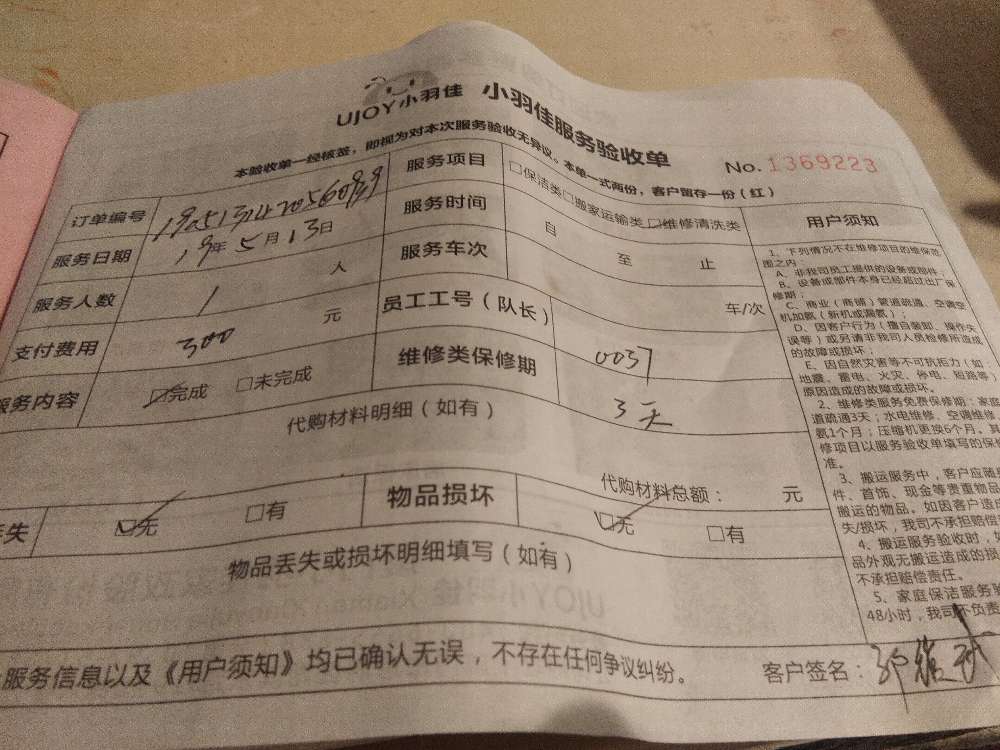 UJOY小羽佳 小羽佳服务验收单
No.1369223
本验收单一经核签，即视为对本次服务验收无异议。本单一式两份，客户留存一份（红）
订单编号
服务项目 □保洁类□搬家运输类□维修清洗类
用户须知
服务日期 19年5月13日
服务时间 自 至 止
服务人数 1 人
服务车次 车/次
支付费用 300 元
员工工号（队长） 0037
服务内容 ☑完成 □未完成
维修类保修期 3天
代购材料明细（如有）
代购材料总额： 元
丢失 ☑无 □有
物品损坏 ☑无 □有
物品丢失或损坏明细填写（如有）
1、下列情况不在维修项目的维保范
围之内：
A、非我司员工提供的设备或部件；
B、设备或部件本身已经超过出厂保
修期；
C、商业（商铺）管道疏通、空调空
机加氨（新机或漏氨）；
D、因客户行为（擅自装卸、操作失
误等）或另请非我司人员检修所造成
的故障或损坏；
E、因自然灾害等不可抗拒力（如
地震、雷电、火灾、停电、短路等）
原因造成的故障或损坏。
2、维修类服务免费保修期：家庭
道疏通3天；水电维修、空调维修
氨1个月；压缩机更换6个月。其
修项目以服务验收单填写的保
准。
3、搬运服务中，客户应随
件、首饰、现金等贵重物品
搬运的物品。如因客户造
失/损坏，我司不承担赔偿
4、搬运服务验收时，如
品外观无搬运造成的损
不承担赔偿责任。
5、家庭保洁服务验
48小时，我司不负责
服务信息以及《用户须知》均已确认无误，不存在任何争议纠纷。
客户签名：